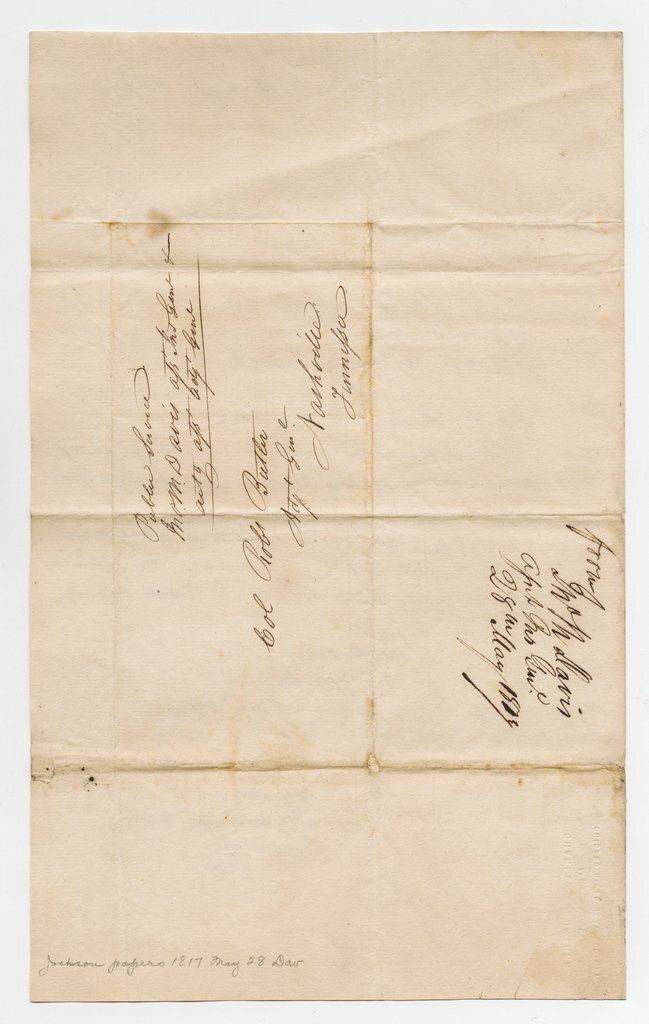 Public Service
Jno. M. Davis asst Ins Genl &
actg asst adjt Genl
Col Robt Butler
Adjt Genl
Nashville
Tennessee
From
M Davis
Asst Ins Genl
28th May 1817
Jackson papers 1817 May 28 Dav